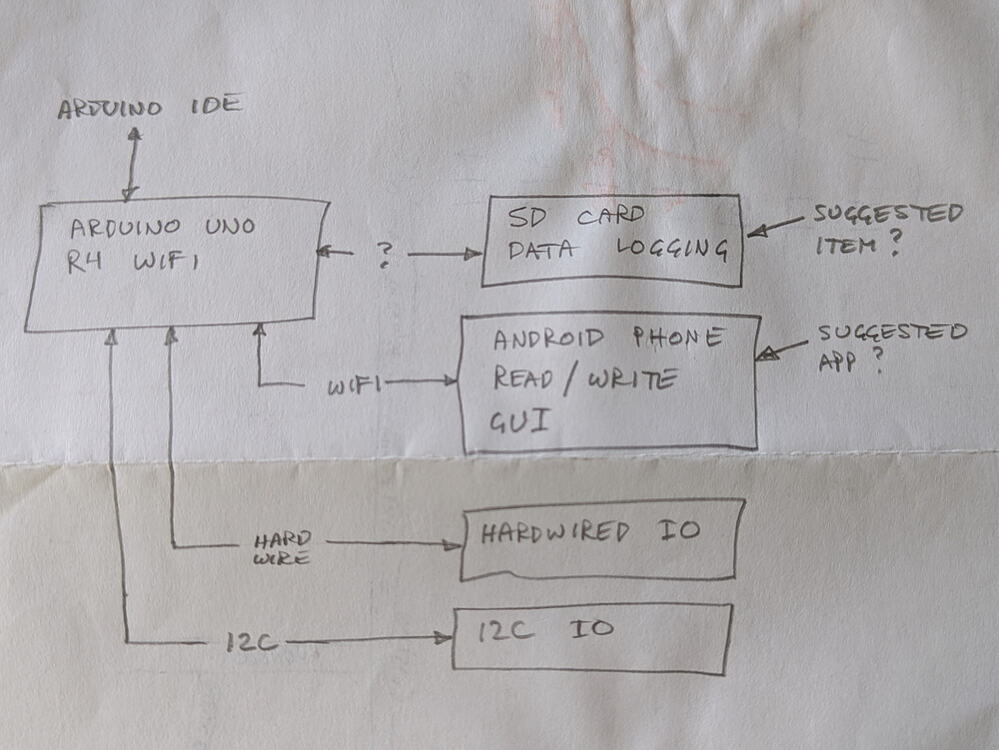 ARDUINO IDE
ARDUINO UNO
R4 WIFI
?
SD CARD
DATA LOGGING
SUGGESTED
ITEM?
WIFI
ANDROID PHONE
READ/WRITE
GUI
SUGGESTED
APP?
HARD
WIRE
HARDWIRED IO
I2C
I2C IO